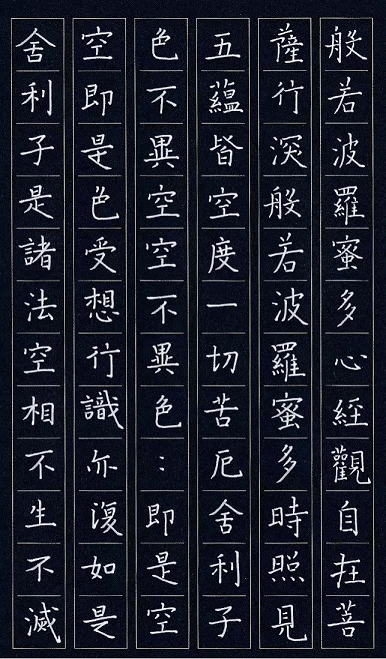 般若波羅蜜多心經觀自在菩
薩行深般若波羅蜜多時照見
五蘊皆空度一切苦厄舍利子
色不異空空不異色：即是空
空即是色受想行識亦復如是
舍利子是諸法空相不生不滅